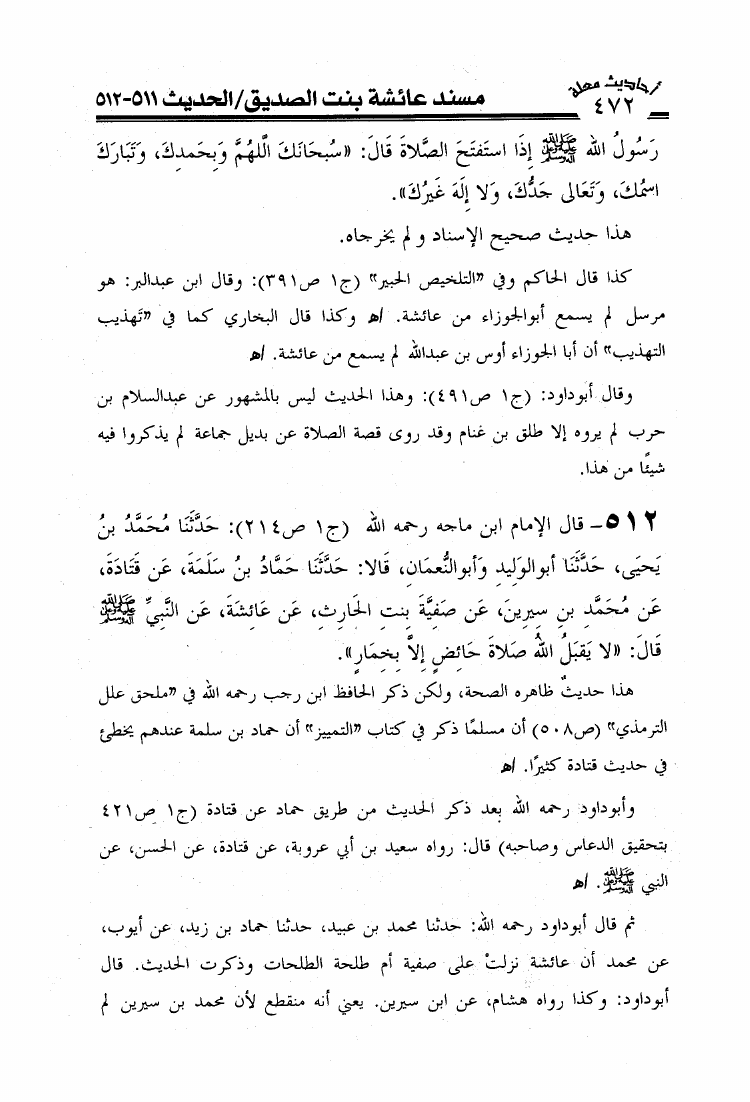 أحاديث معلة
٤٧٢
مسند عائشة بنت الصديق/الحديث ٥١١-٥١٢
رَسُولُ الله ﷺ إِذَا استَفتَحَ الصَّلاةَ قَالَ: «سُبحَانَكَ اللَّهُمَّ وَبِحَمدِكَ، وَتَبَارَكَ
اسمُكَ، وَتَعَالى جَدُّكَ، وَلا إِلَهَ غَيرُكَ».
هذا حديث صحيح الإسناد و لم يخرجاه.
كذا قال الحاكم وفي «التلخيص الحبير» (ج١ ص٣٩١): وقال ابن عبدالبر: هو
مرسل لم يسمع أبوالجوزاء من عائشة. اهـ وكذا قال البخاري كما في «تَهذيب
التهذيب» أن أبا الجوزاء أوس بن عبدالله لم يسمع من عائشة. اهـ
وقال أبوداود: (ج١ ص٤٩١): وهذا الحديث ليس بالمشهور عن عبدالسلام بن
حرب لم يروه إلا طلق بن غنام وقد روى قصة الصلاة عن بديل جماعة لم يذكروا فيه
شيئًا من هذا.
٥١٢- قال الإمام ابن ماجه رحمه الله (ج١ ص٢١٤): حَدَّثَنَا مُحَمَّدُ بنُ
يَحيَى، حَدَّثَنَا أبوالوَليدِ وَأبوالنُّعمَانِ، قَالا: حَدَّثَنَا حَمَّادُ بنُ سَلَمَةَ، عَن قَتَادَةَ،
عَن مُحَمَّدِ بنِ سِيرِينَ، عَن صَفِيَّةَ بِنتِ الحَارِثِ، عَن عَائِشَةَ، عَن النَّبِيِّ ﷺ
قَالَ: «لا يَقبَلُ اللهُ صَلاةَ حَائِضٍ إِلاَّ بِخِمَارٍ».
هذا حديثٌ ظاهره الصحة، ولكن ذكر الحافظ ابن رجب رحمه الله في «ملحق علل
الترمذي» (ص٥٠٨) أن مسلمًا ذكر في كتاب «التمييز» أن حماد بن سلمة عندهم يخطئ
في حديث قتادة كثيرًا. اهـ
وأبوداود رحمه الله بعد ذكر الحديث من طريق حماد عن قتادة (ج١ ص٤٢١
بتحقيق الدعاس وصاحبه) قال: رواه سعيد بن أبي عروبة، عن قتادة، عن الحسن، عن
النبي ﷺ. اهـ
ثم قال أبوداود رحمه الله: حدثنا محمد بن عبيد، حدثنا حماد بن زيد، عن أيوب،
عن محمد أن عائشة نزلتْ على صفية أم طلحة الطلحات وذكرت الحديث. قال
أبوداود: وكذا رواه هشام، عن ابن سيرين. يعني أنه منقطع لأن محمد بن سيرين لم